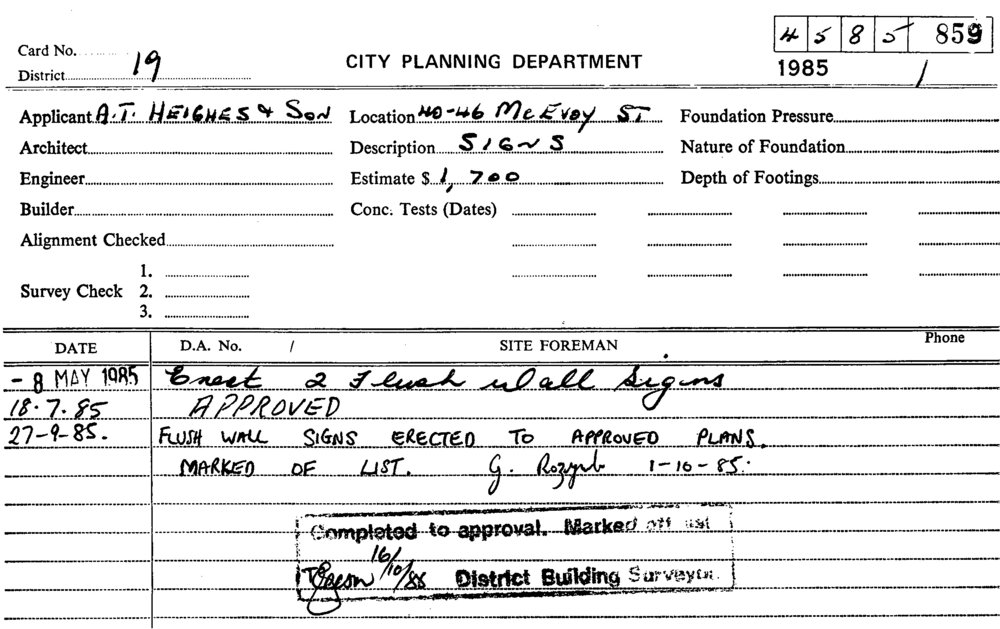 Card No.
4 5 8 5 859
District 19
CITY PLANNING DEPARTMENT
1985 /
Applicant A.T. HEIGHES & SON Location 40-46 McEVOY ST Foundation Pressure
Architect Description SIGNS Nature of Foundation
Engineer Estimate $ 1,700 Depth of Footings
Builder Conc. Tests (Dates)
Alignment Checked
1.
Survey Check 2.
3.
DATE D.A. No. / SITE FOREMAN Phone
- 8 MAY 1985 Erect 2 Flush Wall Signs
18.7.85 APPROVED
27-9-85. FLUSH WALL SIGNS ERECTED TO APPROVED PLANS.
MARKED OF LIST. G. 1-10-85.
Completed to approval. Marked off list
16/
10/ District Building Surveyor.